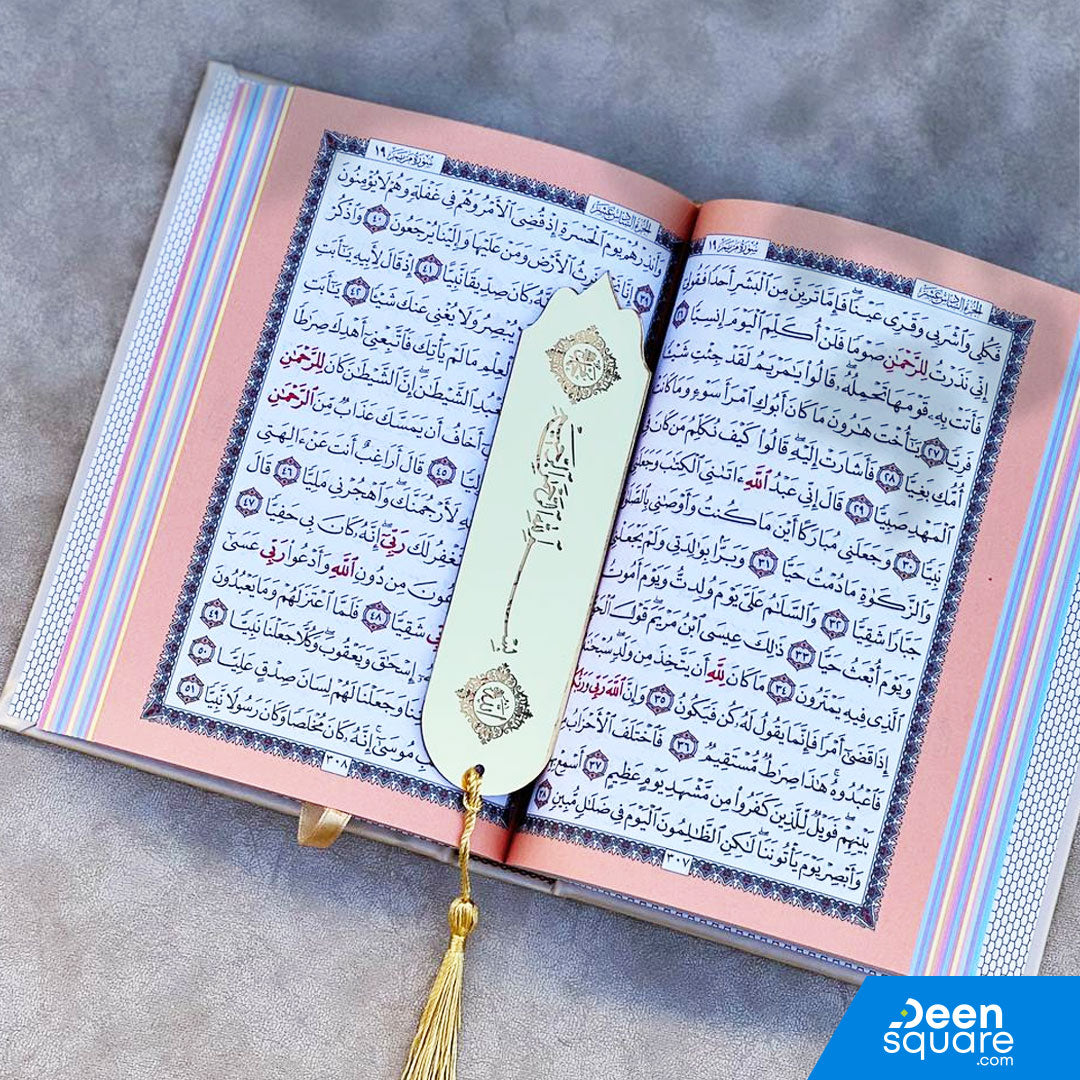 سُورَةُ مَرْيَم ١٩
الجُزْءُ السَّادِسَ عَشَرَ
فَكُلِي وَٱشْرَبِي وَقَرِّي عَيْنًا فَإِمَّا تَرَيِنَّ مِنَ ٱلْبَشَرِ أَحَدًا فَقُولِي
إِنِّي نَذَرْتُ لِلرَّحْمَٰنِ صَوْمًا فَلَنْ أُكَلِّمَ ٱلْيَوْمَ إِنسِيًّا ٢٦
فَأَتَتْ بِهِۦ قَوْمَهَا تَحْمِلُهُۥ قَالُوا۟ يَٰمَرْيَمُ لَقَدْ جِئْتِ شَيْـًٔا
فَرِيًّا ٢٧ يَٰٓأُخْتَ هَٰرُونَ مَا كَانَ أَبُوكِ ٱمْرَأَ سَوْءٍ وَمَا كَانَتْ
أُمُّكِ بَغِيًّا ٢٨ فَأَشَارَتْ إِلَيْهِ قَالُوا۟ كَيْفَ نُكَلِّمُ مَن كَانَ فِي
ٱلْمَهْدِ صَبِيًّا ٢٩ قَالَ إِنِّي عَبْدُ ٱللَّهِ ءَاتَىٰنِيَ ٱلْكِتَٰبَ وَجَعَلَنِي
نَبِيًّا ٣٠ وَجَعَلَنِي مُبَارَكًا أَيْنَ مَا كُنتُ وَأَوْصَٰنِي بِٱلصَّلَوٰةِ
وَٱلزَّكَوٰةِ مَا دُمْتُ حَيًّا ٣١ وَبَرًّۢا بِوَٰلِدَتِي وَلَمْ يَجْعَلْنِي
جَبَّارًا شَقِيًّا ٣٢ وَٱلسَّلَٰمُ عَلَيَّ يَوْمَ وُلِدتُّ وَيَوْمَ أَمُوتُ
وَيَوْمَ أُبْعَثُ حَيًّا ٣٣ ذَٰلِكَ عِيسَى ٱبْنُ مَرْيَمَ قَوْلَ ٱلْحَقِّ
ٱلَّذِي فِيهِ يَمْتَرُونَ ٣٤ مَا كَانَ لِلَّهِ أَن يَتَّخِذَ مِن وَلَدٍ سُبْحَٰنَهُ
إِذَا قَضَىٰٓ أَمْرًا فَإِنَّمَا يَقُولُ لَهُۥ كُن فَيَكُونُ ٣٥ وَإِنَّ ٱللَّهَ رَبِّي وَرَبُّكُمْ
فَٱعْبُدُوهُ هَٰذَا صِرَٰطٌ مُّسْتَقِيمٌ ٣٦ فَٱخْتَلَفَ ٱلْأَحْزَابُ
بَيْنِهِمْ فَوَيْلٌ لِّلَّذِينَ كَفَرُوا۟ مِن مَّشْهَدِ يَوْمٍ عَظِيمٍ ٣٧ أَسْمِعْ بِهِمْ
وَأَبْصِرْ يَوْمَ يَأْتُونَنَا لَٰكِنِ ٱلظَّٰلِمُونَ ٱلْيَوْمَ فِي ضَلَٰلٍ مُّبِينٍ ٣٨
٣٠٧
سُورَةُ مَرْيَم ١٩
الجُزْءُ السَّادِسَ عَشَرَ
وَأَنذِرْهُمْ يَوْمَ ٱلْحَسْرَةِ إِذْ قُضِيَ ٱلْأَمْرُ وَهُمْ فِي غَفْلَةٍ وَهُمْ لَا يُؤْمِنُونَ
٣٩ إِنَّا نَرِثُ ٱلْأَرْضَ وَمَنْ عَلَيْهَا وَإِلَيْنَا يُرْجَعُونَ ٤٠ وَٱذْكُرْ
كَانَ صِدِّيقًا نَّبِيًّا ٤١ إِذْ قَالَ لِأَبِيهِ يَٰٓأَبَتِ
يُبْصِرُ وَلَا يُغْنِي عَنكَ شَيْـًٔا ٤٢ يَٰٓأَبَتِ
ٱلْعِلْمِ مَا لَمْ يَأْتِكَ فَٱتَّبِعْنِيٓ أَهْدِكَ صِرَٰطًا
ٱلشَّيْطَٰنَ إِنَّ ٱلشَّيْطَٰنَ كَانَ لِلرَّحْمَٰنِ
أَخَافُ أَن يَمَسَّكَ عَذَابٌ مِّنَ ٱلرَّحْمَٰنِ
٤٥ قَالَ أَرَاغِبٌ أَنتَ عَنْ ءَالِهَتِي
لَأَرْجُمَنَّكَ وَٱهْجُرْنِي مَلِيًّا ٤٦ قَالَ
لَكَ رَبِّيٓ إِنَّهُۥ كَانَ بِي حَفِيًّا ٤٧
مِن دُونِ ٱللَّهِ وَأَدْعُوا۟ رَبِّي عَسَىٰٓ
شَقِيًّا ٤٨ فَلَمَّا ٱعْتَزَلَهُمْ وَمَا يَعْبُدُونَ
إِسْحَٰقَ وَيَعْقُوبَ وَكُلًّا جَعَلْنَا نَبِيًّا ٤٩
وَجَعَلْنَا لَهُمْ لِسَانَ صِدْقٍ عَلِيًّا ٥٠
مُوسَىٰٓ إِنَّهُۥ كَانَ مُخْلَصًا وَكَانَ رَسُولًا نَّبِيًّا ٥١
٣٠٨
الله
Deen
square
.com